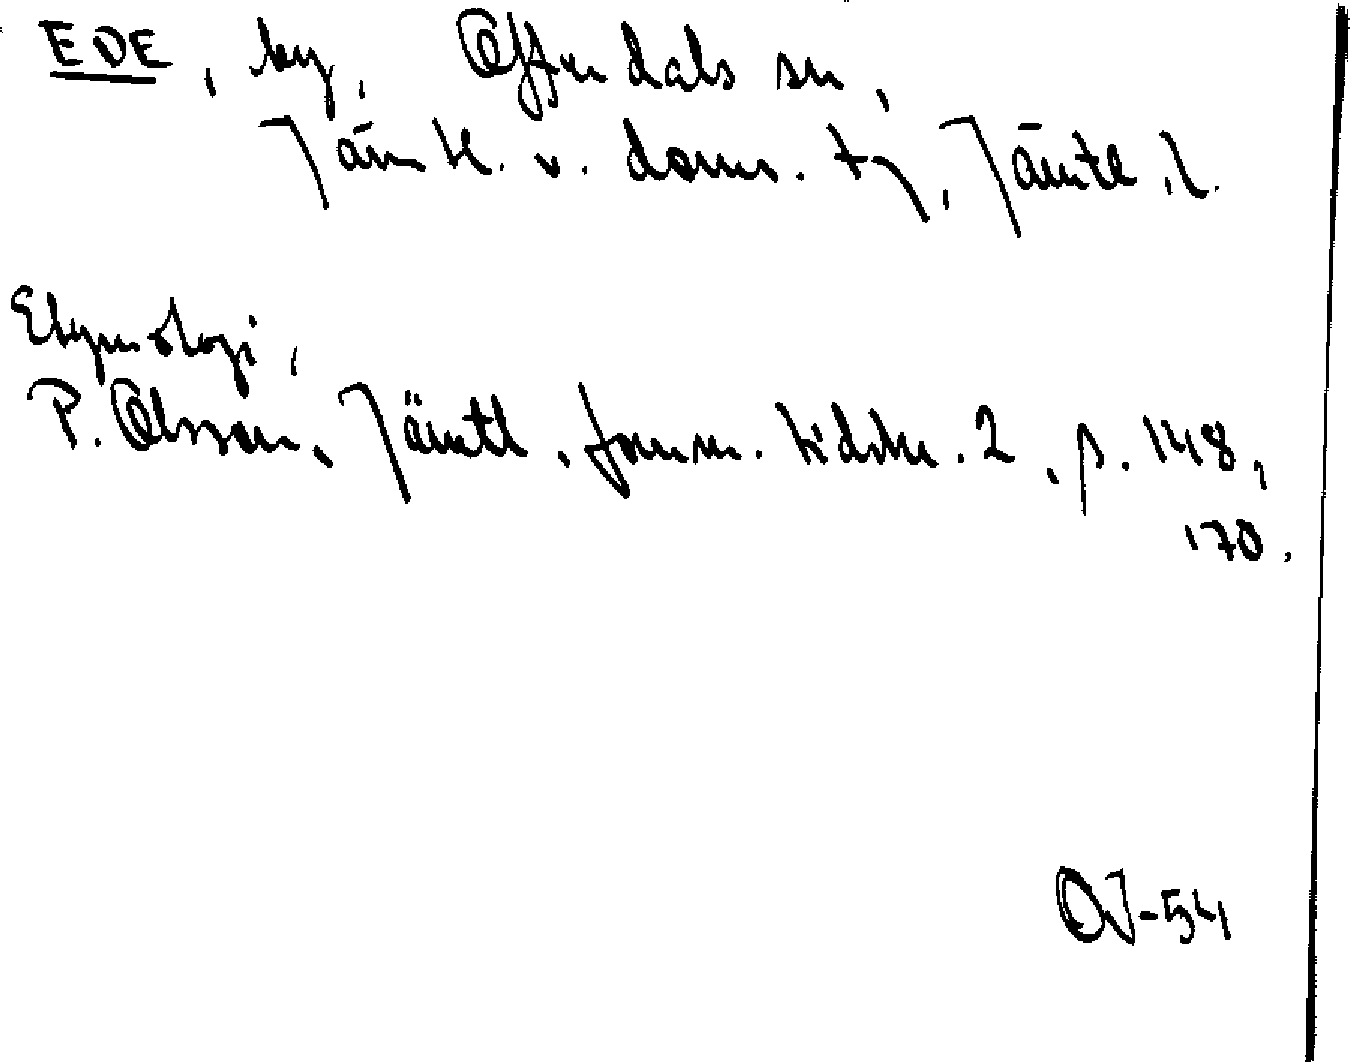 EDE, by, Offerdals sn,
Jämtl. v. doms. tg, Jämtl. l.
Etymologi,
P. Olsson, Jämtl. fornm. tidskr. 2, p. 148,
170.
OJ-54